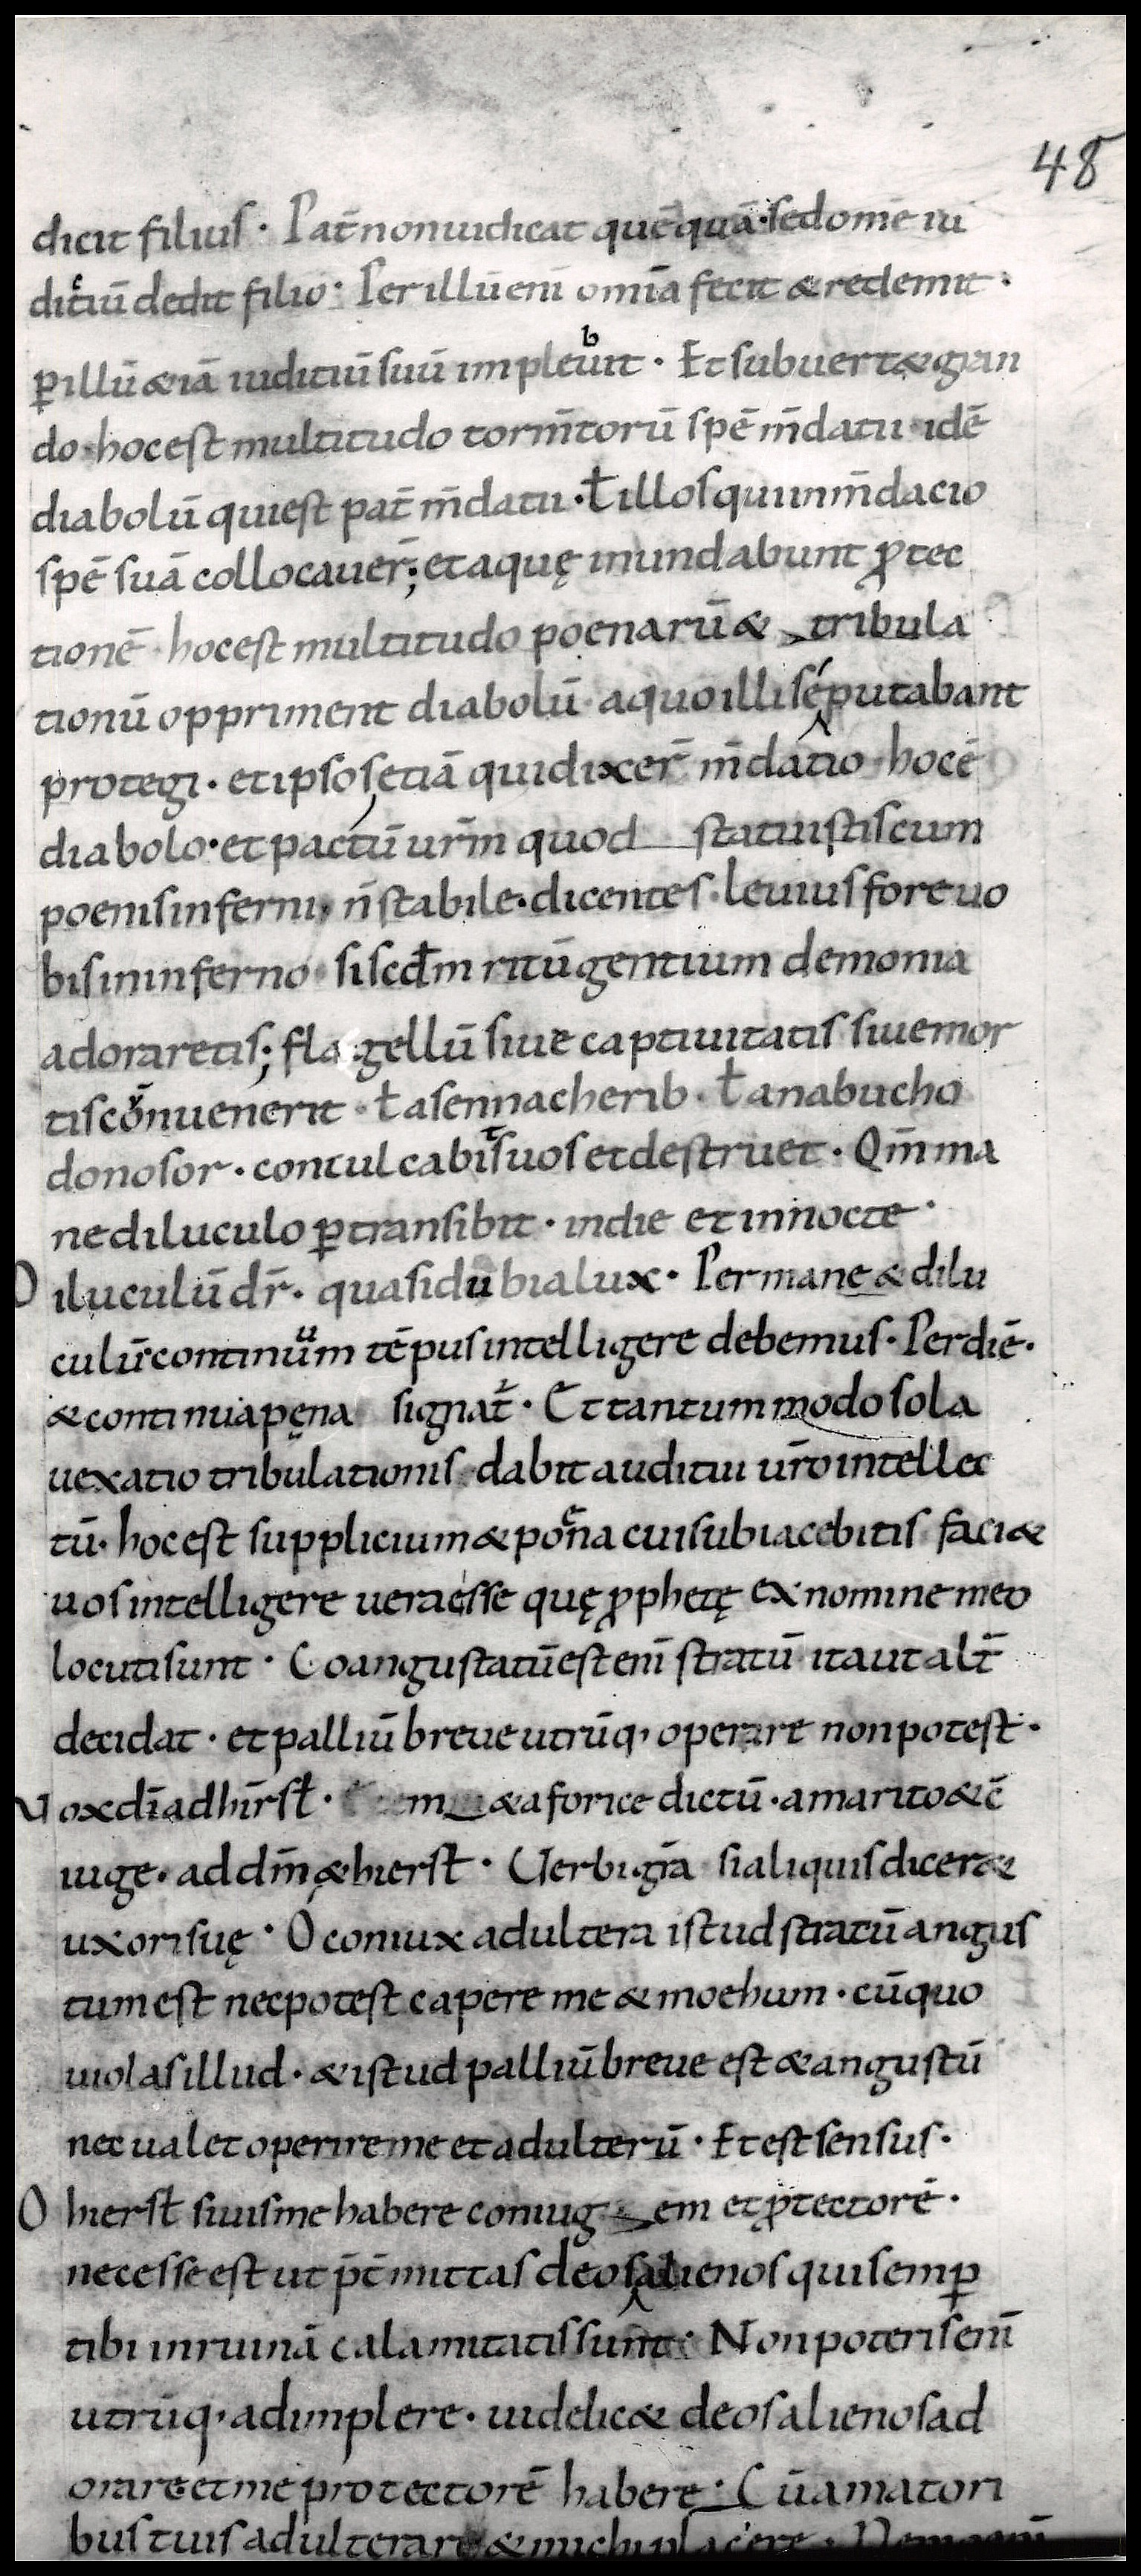 48
dicit filius · Pat̄ non iudicat quēquā · sed omē iu
diciū dedit filio · Per illū enī omīa fecit & redemit ·
ꝑ illū & iā iuditiū suū implebit · Et subuert& gran
do · hoc est multitudo torm̄torū spē m̄datii · idē
diabolū qui est pat̄ m̄datii · ł illos qui in m̄dacio
spē suā collocauer̄; et aquę inundabunt ꝓtec
tionē · hoc est multitudo poenarū & tribula
tionū oppriment diabolū · a quo illi se putabant
protegi · et ipsos etiā qui dixer̄ m̄datio · hoc ē
diabolo · et pactū ur̄m quod statuistis cum
poenis inferni, n̄ stabile · dicentes · leuius fore uo
bis in inferno · si scd̄m ritū gentium demonia
adoraretis; flagellū siue captiuitatis siue mor
tis cōnuenerit · ł a sennacherib · ł a nabucho
donosor · conculcabit uos et destruet · Qm̄ ma
ne diluculo ꝑtransibit · in die et in nocte ·
Diluculū dr̄ · quasi dubia lux · Per mane & dilu
culū continuum tēpus intelligere debemus · Per diē ·
& continua pęna signat̄ · Et tantummodo sola
uexatio tribulationis · dabit auditui ur̄o intellec
tū · hoc est supplicium & poena cui subiacebitis faci&
uos intelligere uera esse quę ꝓphetę ex nomine meo
locuti sunt · Coangustatū est enī stratū ita ut alt̄
decidat · et palliū breue utrūq, operare non potest ·
Uox dn̄i ad hir̄sł · & aforice dictū · a marito & c̄
iuge · ad dm̄ & hiersł · Uerbi gr̄a si aliquis dicer&
uxori suę · O coniux adultera istud stratū angus
tum est nec potest capere me & moehum · cū quo
uiolas illud · & istud palliū breue est & angustū
nec ualet operire me et adulterū · Et est sensus ·
O hiersł si uis me habere coniugem et ꝓtectorē ·
necesse est ut p̄t mittas deos alienos qui semꝑ
tibi in ruinā calamitatis sunt · Non poteris enī
utrūq, adimplere · uidelic& deos alienos ad
orare et me protectorē habere · Cū amatori
bus tuis adulterare & michi placere ·